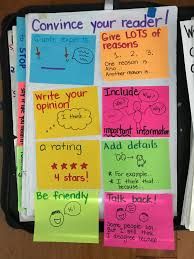 Convince your reader!
Quote experts
Give LOTS of
reasons
1, 2, 3.
One reason is
Also
Another reason is...
Write your
opinion!
I think...
Include
important information
a rating
4 stars!
Add details
* For example...
* I think that
because...
Be friendly
Hi!
Talk back!
Some people say
but I still think
I disagree because
STOP